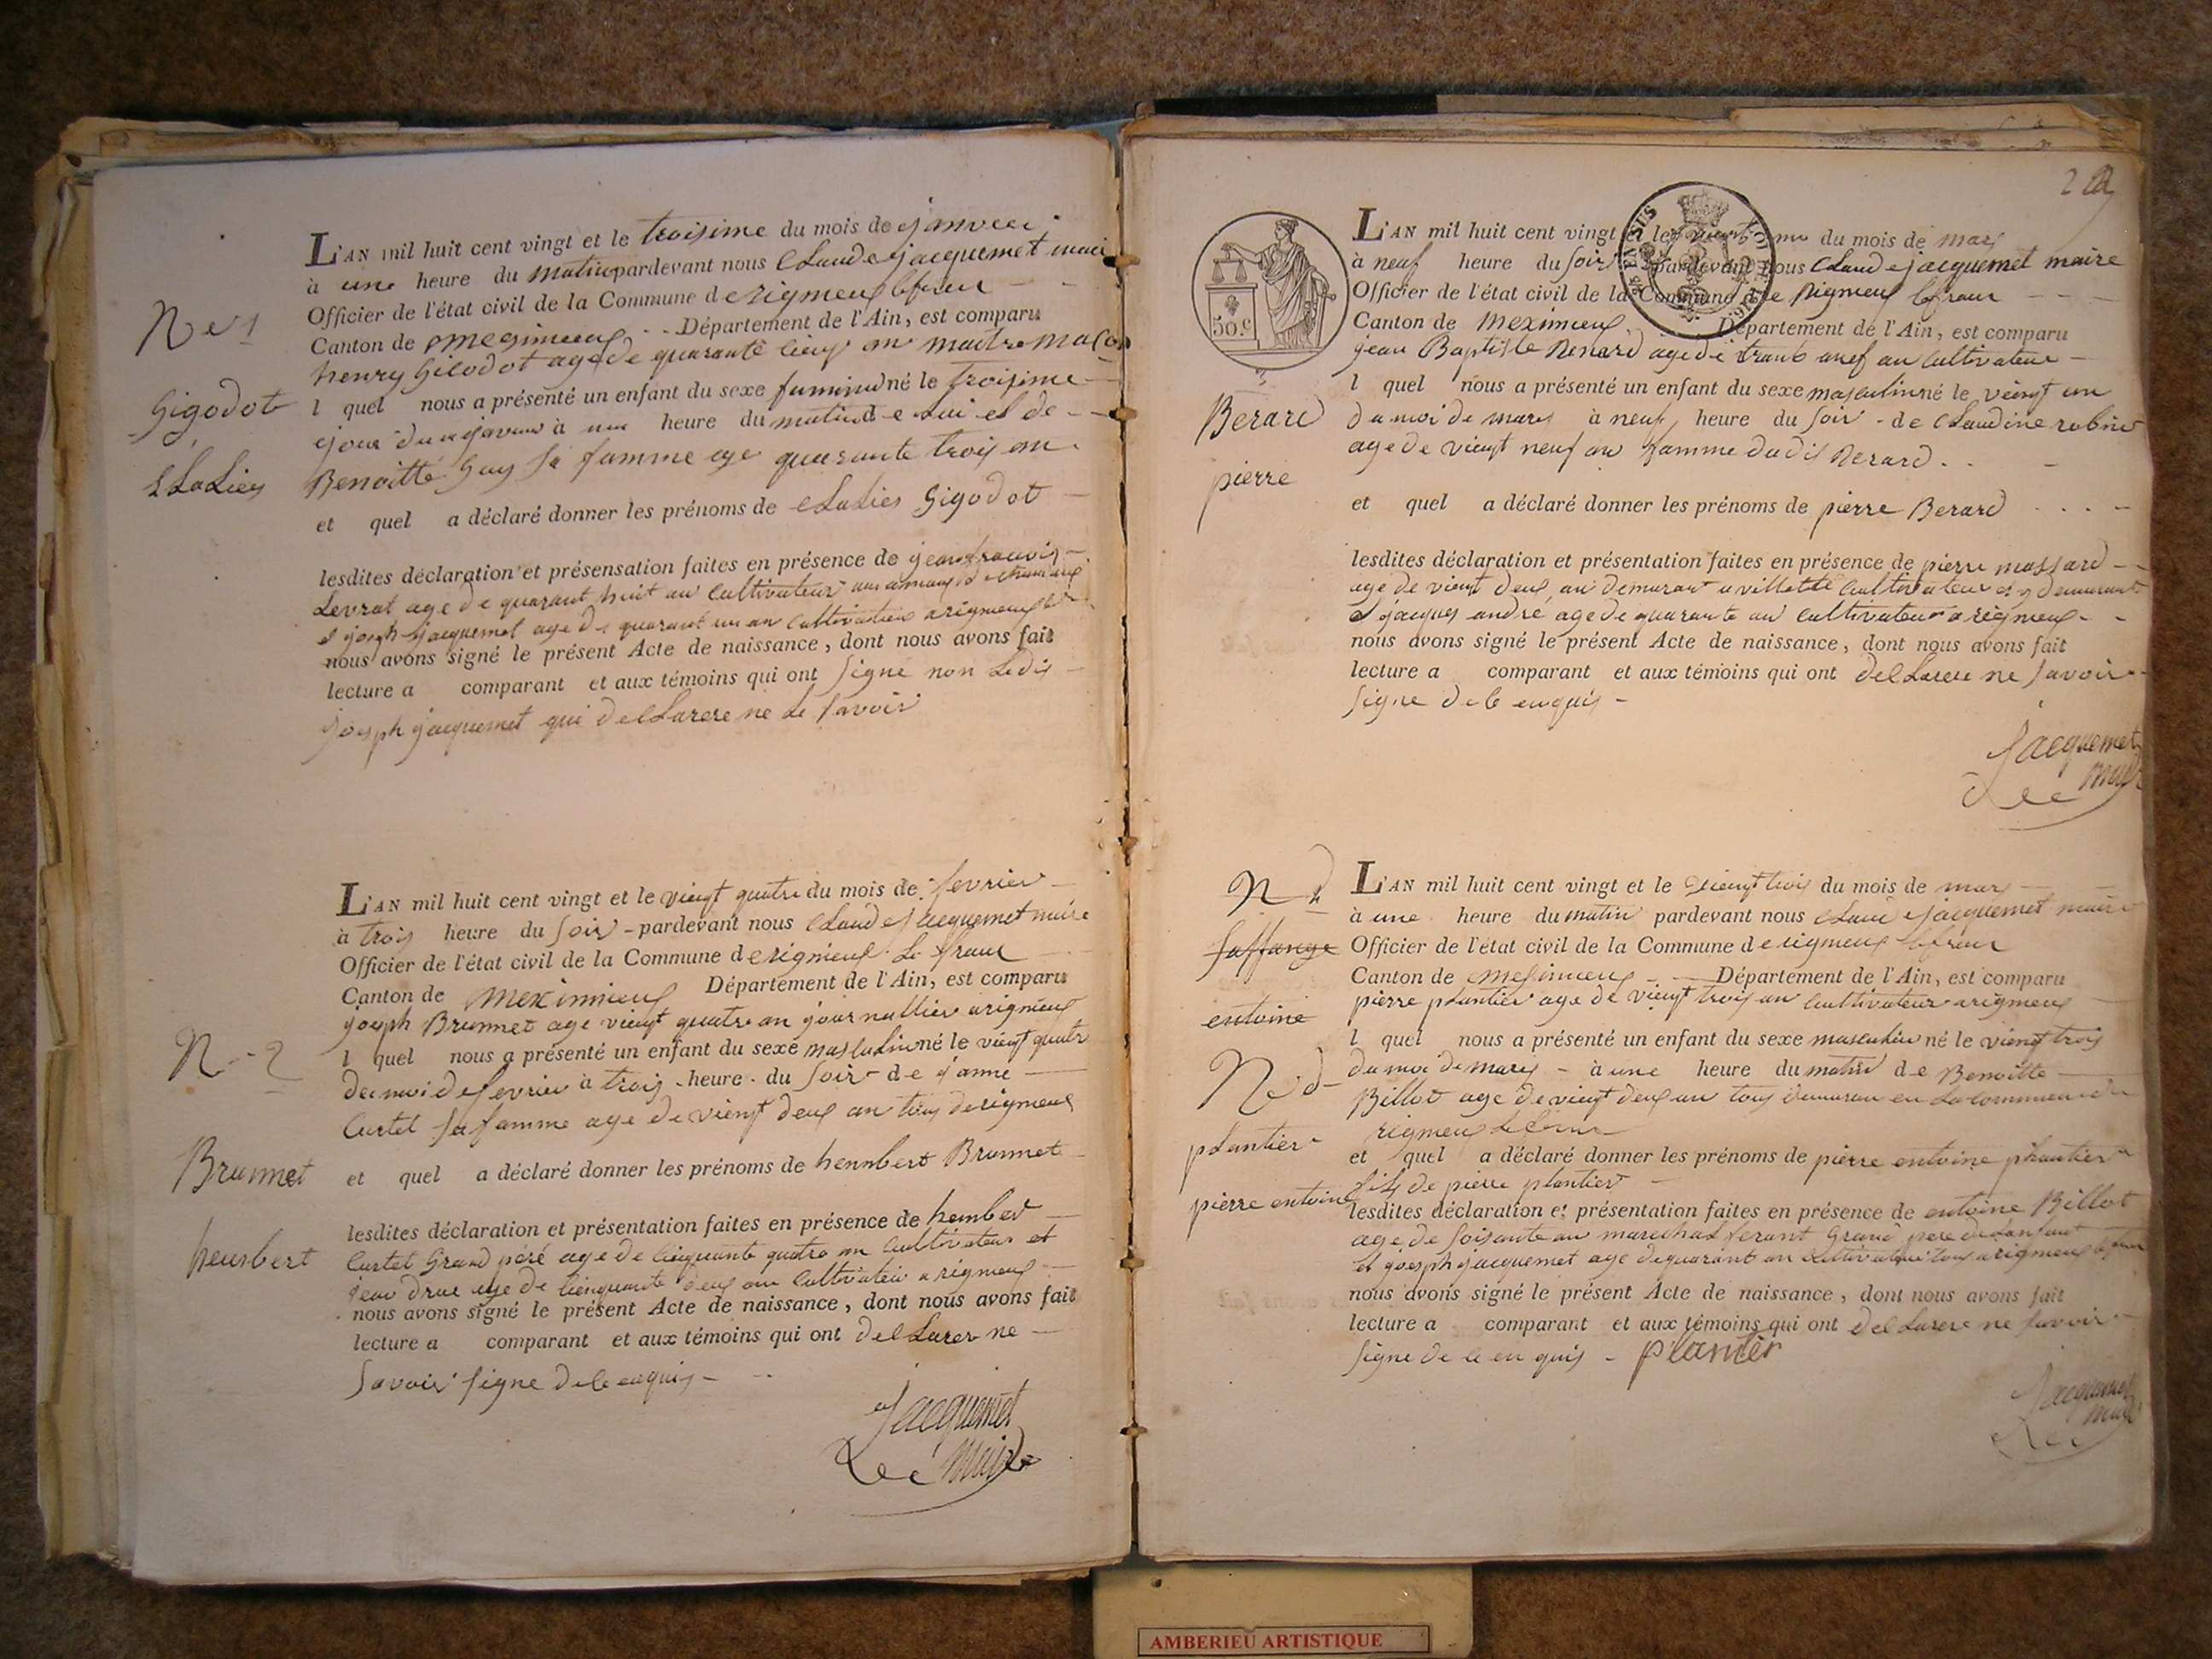 L'AN mil huit cent vingt et le troisime du mois de janvier
à une heure du matin pardevant nous Claude jacquemet maire
Officier de l'état civil de la Commune de rigneux lefranc
Canton de meximieux Département de l'Ain, est comparu
henry Gigodot age de quarante cinq an maitre maçon
l quel nous a présenté un enfant du sexe faminin né le troisime
jour du janvier à une heure du matin de lui et de
Benoitte Guy sa famme age quarante trois an
et quel a déclaré donner les prénoms de Gigodot
lesdites déclaration et présensation faites en présence de jean francois
Levrat age de quarant huit an Cultivateur
et joseph jacquemet age de quarant un an Cultivateur a rigneux
nous avons signé le présent Acte de naissance, dont nous avons fait
lecture a comparant et aux témoins qui ont signe non Ledis
joseph jacquemet qui dellarere ne le savoir
N 1
Gigodot
L'AN mil huit cent vingt et le viengt quatre du mois de fevrier
à trois heure du soir pardevant nous Claude jacquemet maire
Officier de l'état civil de la Commune de rigneux Le franc
Canton de Meximieux Département de l'Ain, est comparu
joseph Brunnet age viengt quatre an journallier a rigneux
l quel nous a présenté un enfant du sexe masculin né le viengt quatre
du moi de fevrier à trois heure du soir de janne
Curtet sa famme age de viengt deux an tous de rigneux
et quel a déclaré donner les prénoms de hennbert Brunnet
lesdites déclaration et présentation faites en présence de
Curtet Grand péré age de cinquante quatre an Cultivateur et
jean drue age de cinquante deux an Cultivateur a rigneux
nous avons signé le présent Acte de naissance, dont nous avons fait
lecture a comparant et aux témoins qui ont dellarer ne
savoir signe de le enquis
Jacquemet
Maire
N 2
Brunnet
heunbert
2
50 c
L'AN mil huit cent vingt et le du mois de mars
à neuf heure du soir pardevant nous Claude jacquemet maire
Officier de l'état civil de la Commune de Rigneux lefranc
Canton de Meximieux Département de l'Ain, est comparu
jean Baptiste Berard age de an Cultivateur
l quel nous a présenté un enfant du sexe masculin né le viengt un
du moi de mars à neuf heure du soir de Claudine robin
age de viengt neuf an famme dudit Berard
et quel a déclaré donner les prénoms de pierre Berard
lesdites déclaration et présentation faites en présence de pierre massard
age de viengt deux an demurant a villette Cultivateur et y demurant
et jacques andré age de quarante an Cultivateur a rigneux
nous avons signé le présent Acte de naissance, dont nous avons fait
lecture a comparant et aux témoins qui ont dellarere ne savoir
signe de le enquis
Jacquemet
maire
3
Berard
pierre
L'AN mil huit cent vingt et le viengt trois du mois de mars
à une heure du matin pardevant nous Claude jacquemet maire
Officier de l'état civil de la Commune de rigneux lefranc
Canton de meximieux Département de l'Ain, est comparu
pierre plantier age de viengt trois an Cultivateur a rigneux
l quel nous a présenté un enfant du sexe masculin né le viengt trois
du moi de mars à une heure du matin de Benoitte
Billot age de viengt deux an tous demuran en la commune de
rigneux le franc
et quel a déclaré donner les prénoms de pierre entoine plantier
fils de pierre plantier
lesdites déclaration et présentation faites en présence de entoine Billot
age de soisante an marechal ferant Grand pere de Lanfant
et joseph jacquemet age de quarant an Cultivateur tous a rigneux lefranc
nous avons signé le présent Acte de naissance, dont nous avons fait
lecture a comparant et aux témoins qui ont dellarere ne savoir
signe de le en quis plantier
Jacquemet
maire
N
faffange
entoine
N
plantier
pierre entoine
AMBERIEU ARTISTIQUE